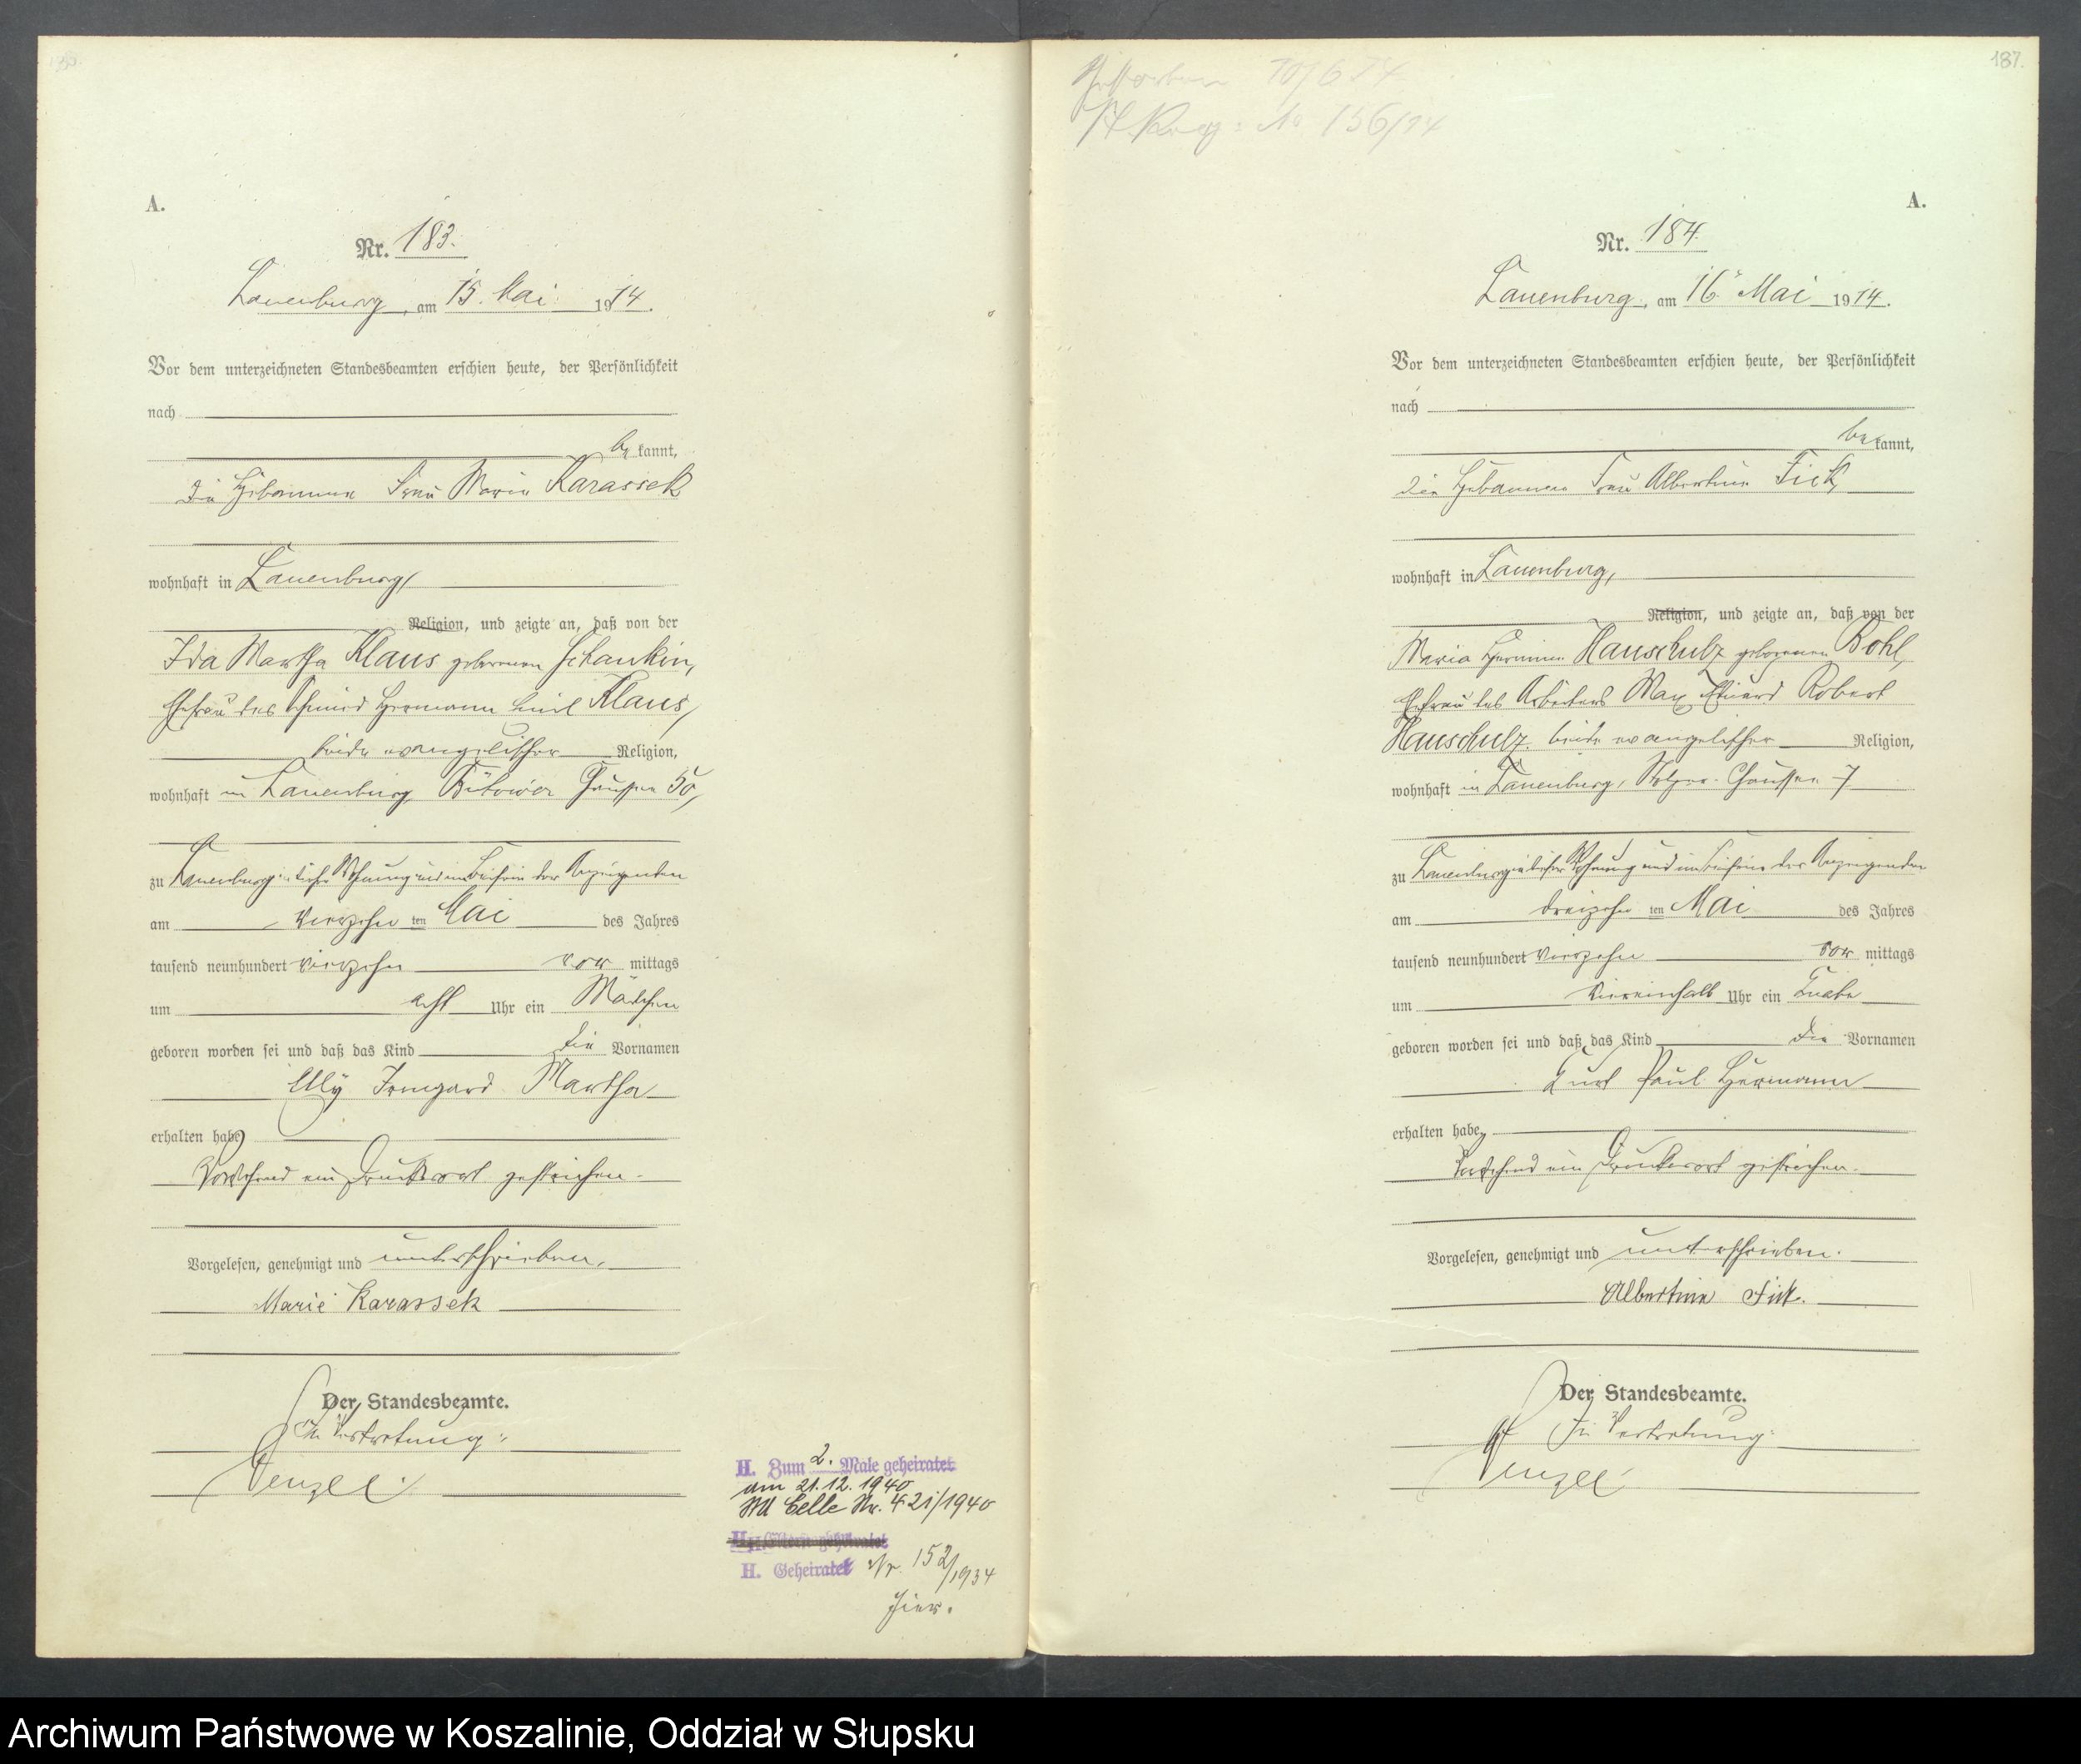 A.
Nr. 183.
Lauenburg, am 15. Mai 1914.
Vor dem unterzeichneten Standesbeamten erschien heute, der Persönlichkeit
nach
be kannt,
die Hebamme Frau Marie Karassek
wohnhaft in Lauenburg,
Religion, und zeigte an, daß von der
Ida Martha Klaus geborenen Schankin,
Ehefrau des Schmied Hermann Emil Klaus,
beide evangelischer Religion,
wohnhaft in Lauenburg Bütower Chaussee 50,
zu Lauenburg in dieser Wohnung und im Beisein der Anzeigenden
am vierzehn ten Mai des Jahres
tausend neunhundert vierzehn vor mittags
um acht Uhr ein Mädchen
geboren worden sei und daß das Kind die Vornamen
Elly Irmgard Martha
erhalten habe
Vorstehend ein Druckwort gestrichen.
Vorgelesen, genehmigt und unterschrieben.
Marie Karassek
Der Standesbeamte.
In Vertretung:
Wenzel
H. Zum 2. Male geheiratet
am 21.12.1940
StA Celle Nr. 421/1940
H. Geheiratet Nr. 152/1934
hier.
187.
Gestorben 10/6 14
St. Reg: No 156/14
A.
Nr. 184.
Lauenburg, am 16. Mai 1914.
Vor dem unterzeichneten Standesbeamten erschien heute, der Persönlichkeit
nach
be kannt,
die Hebamme Frau Albertine Fick,
wohnhaft in Lauenburg,
Religion, und zeigte an, daß von der
Maria Hermine Hauschulz geborenen Bohl,
Ehefrau des Arbeiters Max Eduard Robert
Hauschulz, beide evangelischer Religion,
wohnhaft in Lauenburg, Stolper-Chaussee 7
zu Lauenburg in dieser Wohnung und im Beisein der Anzeigenden
am dreizehn ten Mai des Jahres
tausend neunhundert vierzehn vor mittags
um viereinhalb Uhr ein Knabe
geboren worden sei und daß das Kind die Vornamen
Kurt Paul Hermann
erhalten habe
Vorstehend ein Druckwort gestrichen.
Vorgelesen, genehmigt und unterschrieben.
Albertine Fick.
Der Standesbeamte.
In Vertretung:
Wenzel
Archiwum Państwowe w Koszalinie, Oddział w Słupsku